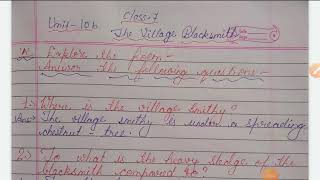 Class-7
Unit-10b
The Village Blacksmith
A. Explore the Poem-
Answer the following questions-
1. Where is the village smithy?
Ans The village smithy is under a spreading
chestnut - tree.
2. To what is the heavy sledge of the
blacksmith compared to?